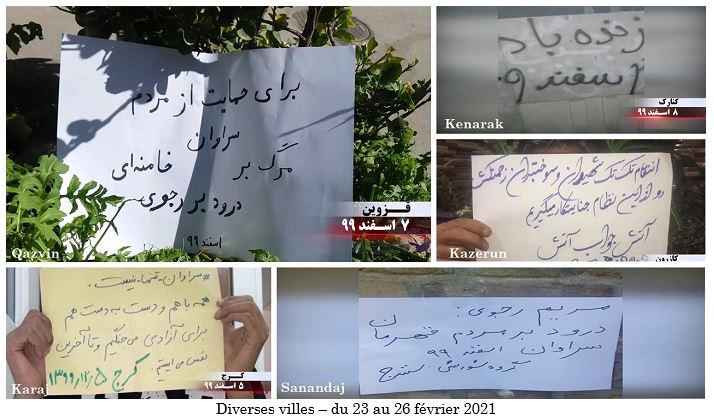 برای حمایت از مردم
سراوان
مرگ بر خامنه‌ای
درود بر رجوی
اسفند ۹۹
قزوین
۷ اسفند ۹۹
Qazvin
زنده باد
اسفند ۹۹
کنارک
۸ اسفند ۹۹
Kenarak
انتقام تک تک شهیدان و سوختبران زحمتکش
رو از این نظام جنایتکار میگیریم
آتش جواب آتش
کازرون
Kazerun
#سراوان_تنها_نیست.
همه با هم و دست به دست هم
برای آزادی می‌جنگیم و تا آخرین
نفس می‌ایستیم.
کرج ۱۳۹۹/۱۲/۵
کرج
۵ اسفند ۹۹
Karaj
مریم رجوی:
درود بر مردم قهرمان
سراوان اسفند ۹۹
گروه شورشی: سنندج
Sanandaj
Diverses villes – du 23 au 26 février 2021